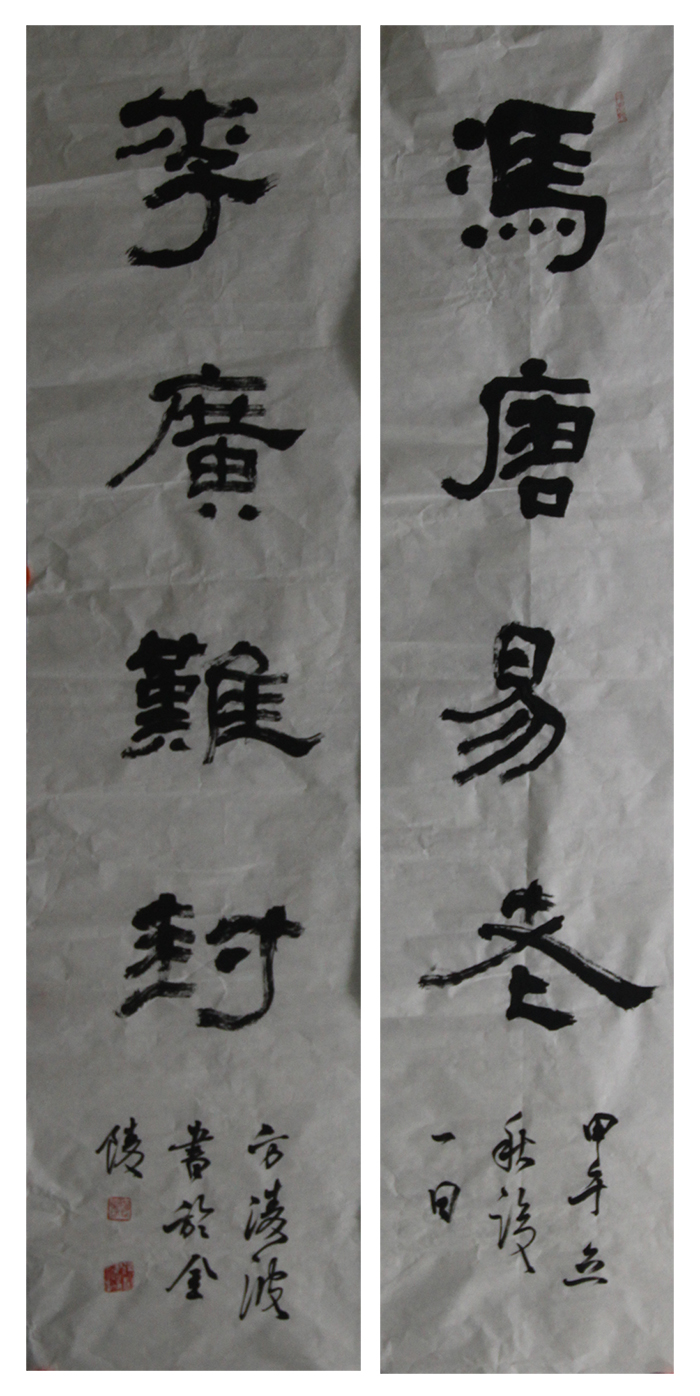 馮唐易老
甲午立
秋後
一日
李廣難封
方淩波
書於金
陵